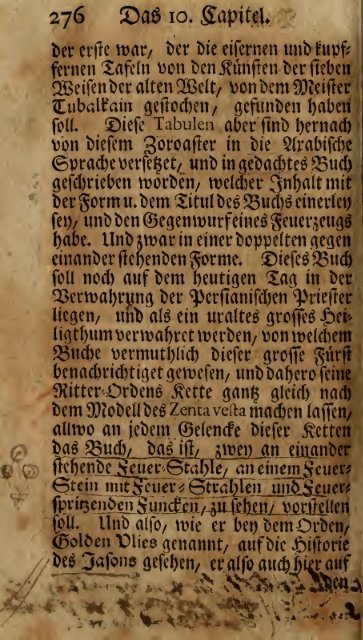 276 Das 10. Capitel.
der erste war, der die eisernen und kupf-
fernen Tafeln von den Künsten der sieben
Weisen der alten Welt, von dem Meister
Tubalkain gestochen, gefunden haben
soll. Diese Tabulen aber sind hernach
von diesem Zoroaster in die Arabische
Sprache versetzet, und in gedachtes Buch
geschrieben worden, welcher Inhalt mit
der Form u. dem Titul des Buchs einerley
sey, und den Gegenwurf eines Feuerzeugs
habe. Und zwar in einer doppelten gegen
einander stehenden Forme. Dieses Buch
soll noch auf dem heutigen Tag in der
Verwahrung der Persianischen Priester
liegen, und als ein uraltes grosses Hei-
ligthum verwahret werden, von welchem
Buche vermuthlich dieser grosse Fürst
benachrichtiget gewesen, und dahero seine
Ritter-Ordens Kette gantz gleich nach
dem Modell des Zenta vesta machen lassen,
allwo an jedem Gelencke dieser Ketten
das Buch, das ist, zwey an einander
stehende Feuer-Stahle, an einem Feuer-
Stein mit Feuer-Strahlen und Feuer-
spritzenden Funcken, zu sehen, vorstellen
soll. Und also, wie er bey dem Orden,
Golden Vlies genannt, auf die Historie
des Jasons gesehen, er also auch hier auf
den